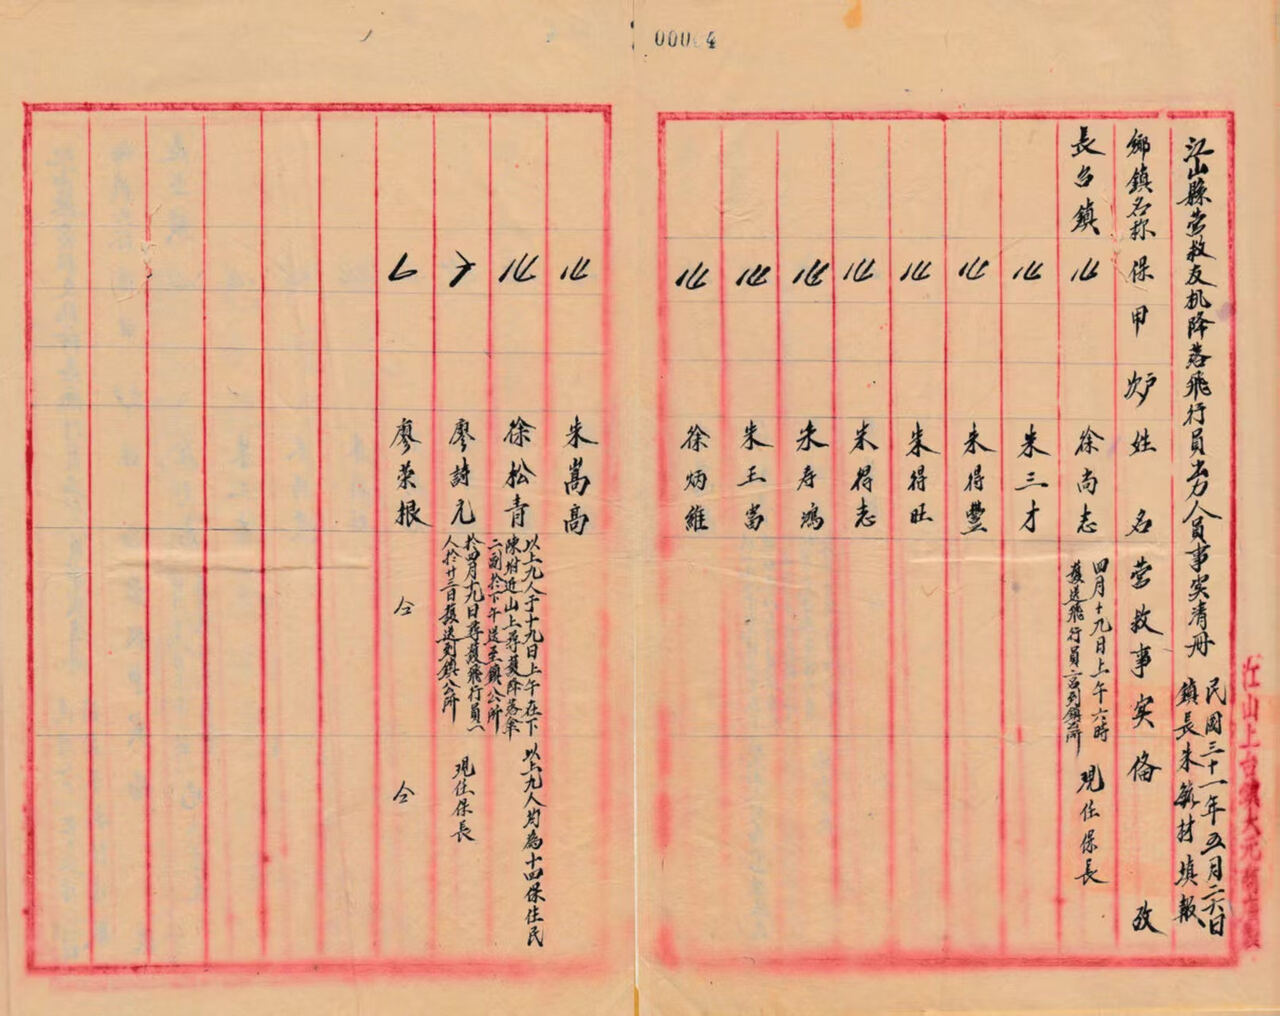 江山縣营救友机降落飛行員出力人員事实清册
民國三十一年五月二六日
鎮長朱毓材填報
鄉鎮名称 保 甲 炉 次 姓名 营救事实 俻攷
長台鎮 14 徐尚志 四月十九日上午六時護送飛行員一宮到鎮公所 現任保長
14 朱三才
14 朱得豐
14 朱得旺
14 朱得志
14 朱寿鴻
14 朱王富
14 徐炳維
14 朱嵩高
14 徐松青 以上九人于十九日上午在下陳附近山上尋獲降落傘二副於下午送至鎮公所 以上九人均為十四保住民
廖詩元 於四月十九日尋獲飛行員一人於廿三日護送到鎮公所 現任保長
6 廖荣根 仝 仝
江山上台